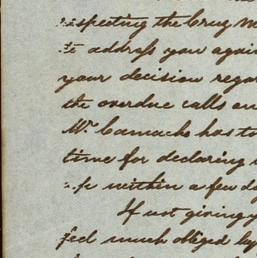 respecting the Cruz M
to address you again
your decision regar
the overdue calls on
Mr Camacho has to
time for declaring
within a few da
If not giving y
feel much obliged by